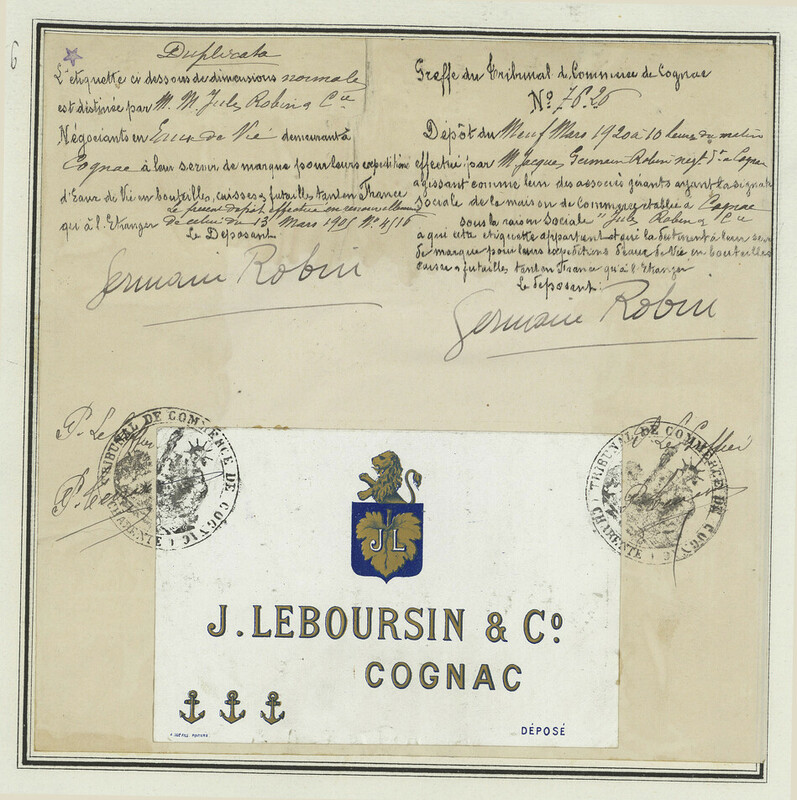 Duplicata
L'étiquette ci dessous de dimensions normales
est destinée par M. M. Jules Robin & Cie
Négociants en Eaux de Vie demeurant à
Cognac à leur servir de marque pour leurs expéditions
d'Eaux de Vie en bouteilles, caisses & futailles tant en France
qu'à l'Etranger
Le présent dépôt effectué en renouvellement
de celui du 13 Mars 1905 Nº 4516
Le Déposant
Germain Robin
Greffe du Tribunal de Commerce de Cognac
Nº 76.26
Dépôt du Neuf Mars 1920 à 10 heures du matin
effectué par M. Jacques Germain Robin négt dt à Cognac
agissant comme l'un des associés gérants ayant la signature
sociale de la maison de Commerce établie à Cognac
sous la raison sociale "Jules Robin & Cie
à qui cette étiquette appartient et qui la destinent à leur servir
de marque pour leurs expéditions d'eaux de Vie en bouteilles
caisses & futailles tant en France qu'à l'Etranger
Le déposant:
Germain Robin
TRIBUNAL DE COMMERCE DE COGNAC
CHARENTE
TRIBUNAL DE COMMERCE DE COGNAC
CHARENTE
JL
J. LEBOURSIN & Cº
COGNAC
DÉPOSÉ